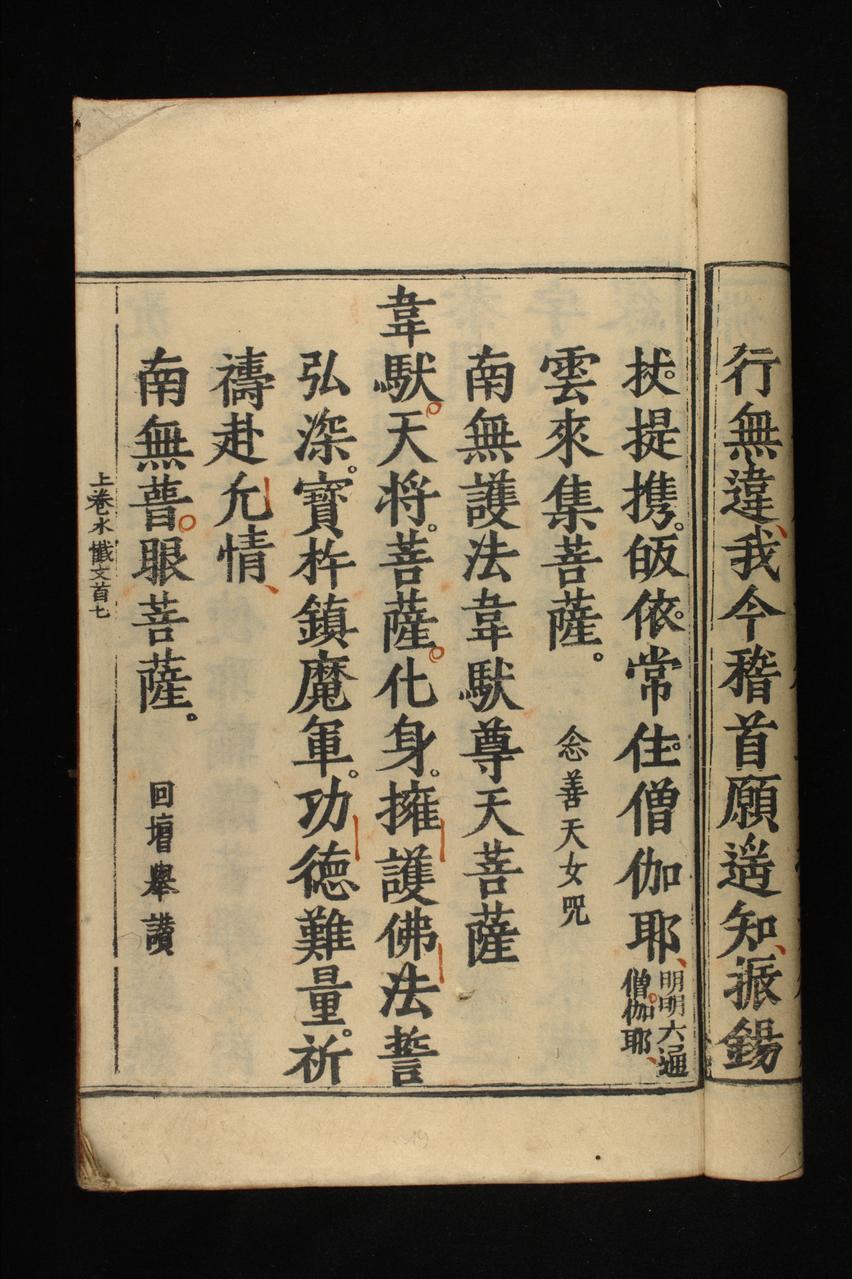 行無違我今稽首願遥知振錫
扙提携皈依常住僧伽耶明明六通僧伽耶
雲來集菩薩。 念善天女咒
南無護法韋馱尊天菩薩
韋馱天将。菩薩化身。擁護佛法誓
弘深。寳杵鎮魔軍。功德難量。祈
禱赴允情
南無普眼菩薩。 回壇舉讃
上卷水懺文首七